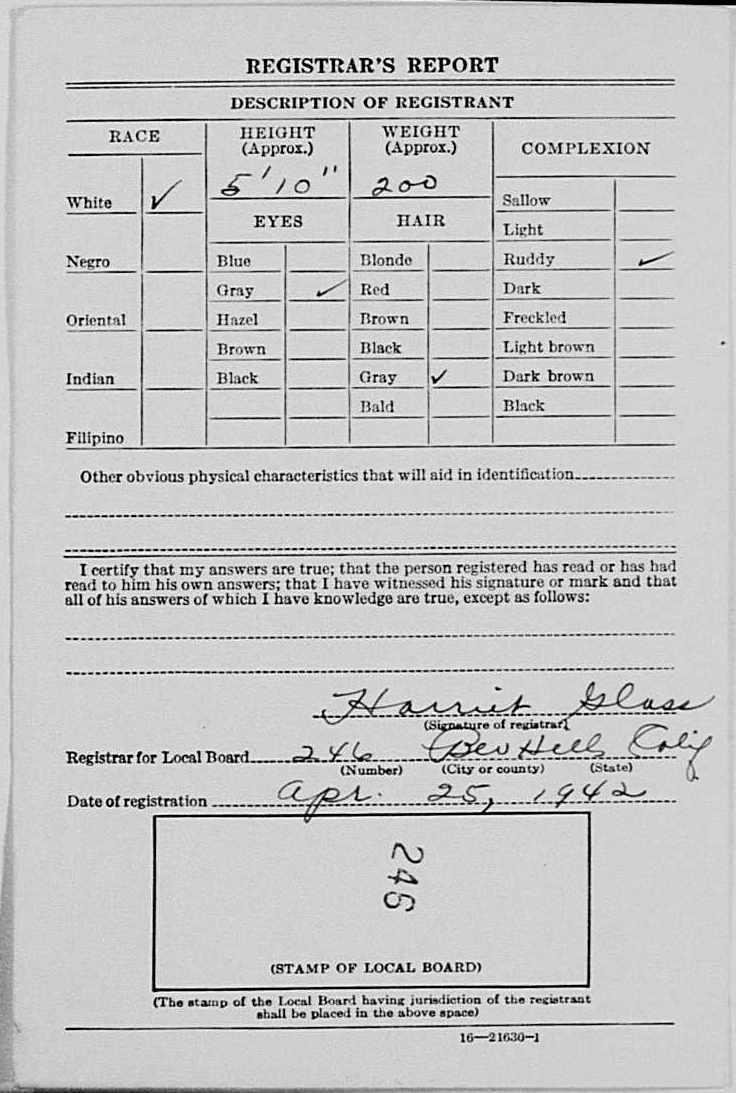 REGISTRAR'S REPORT
DESCRIPTION OF REGISTRANT
RACE
HEIGHT (Approx.)
WEIGHT (Approx.)
COMPLEXION
5'10"
200
White ✓
EYES
HAIR
Sallow
Light
Negro
Blue
Blonde
Ruddy ✓
Gray ✓
Red
Dark
Oriental
Hazel
Brown
Freckled
Brown
Black
Light brown
Indian
Black
Gray ✓
Dark brown
Bald
Black
Filipino
Other obvious physical characteristics that will aid in identification
I certify that my answers are true; that the person registered has read or has had
read to him his own answers; that I have witnessed his signature or mark and that
all of his answers of which I have knowledge are true, except as follows:
Harriet Glass
(Signature of registrar)
Registrar for Local Board 246 Bev Hills Calif
(Number) (City or county) (State)
Date of registration Apr. 25, 1942
246
(STAMP OF LOCAL BOARD)
(The stamp of the Local Board having jurisdiction of the registrant
shall be placed in the above space)
16—21630-1